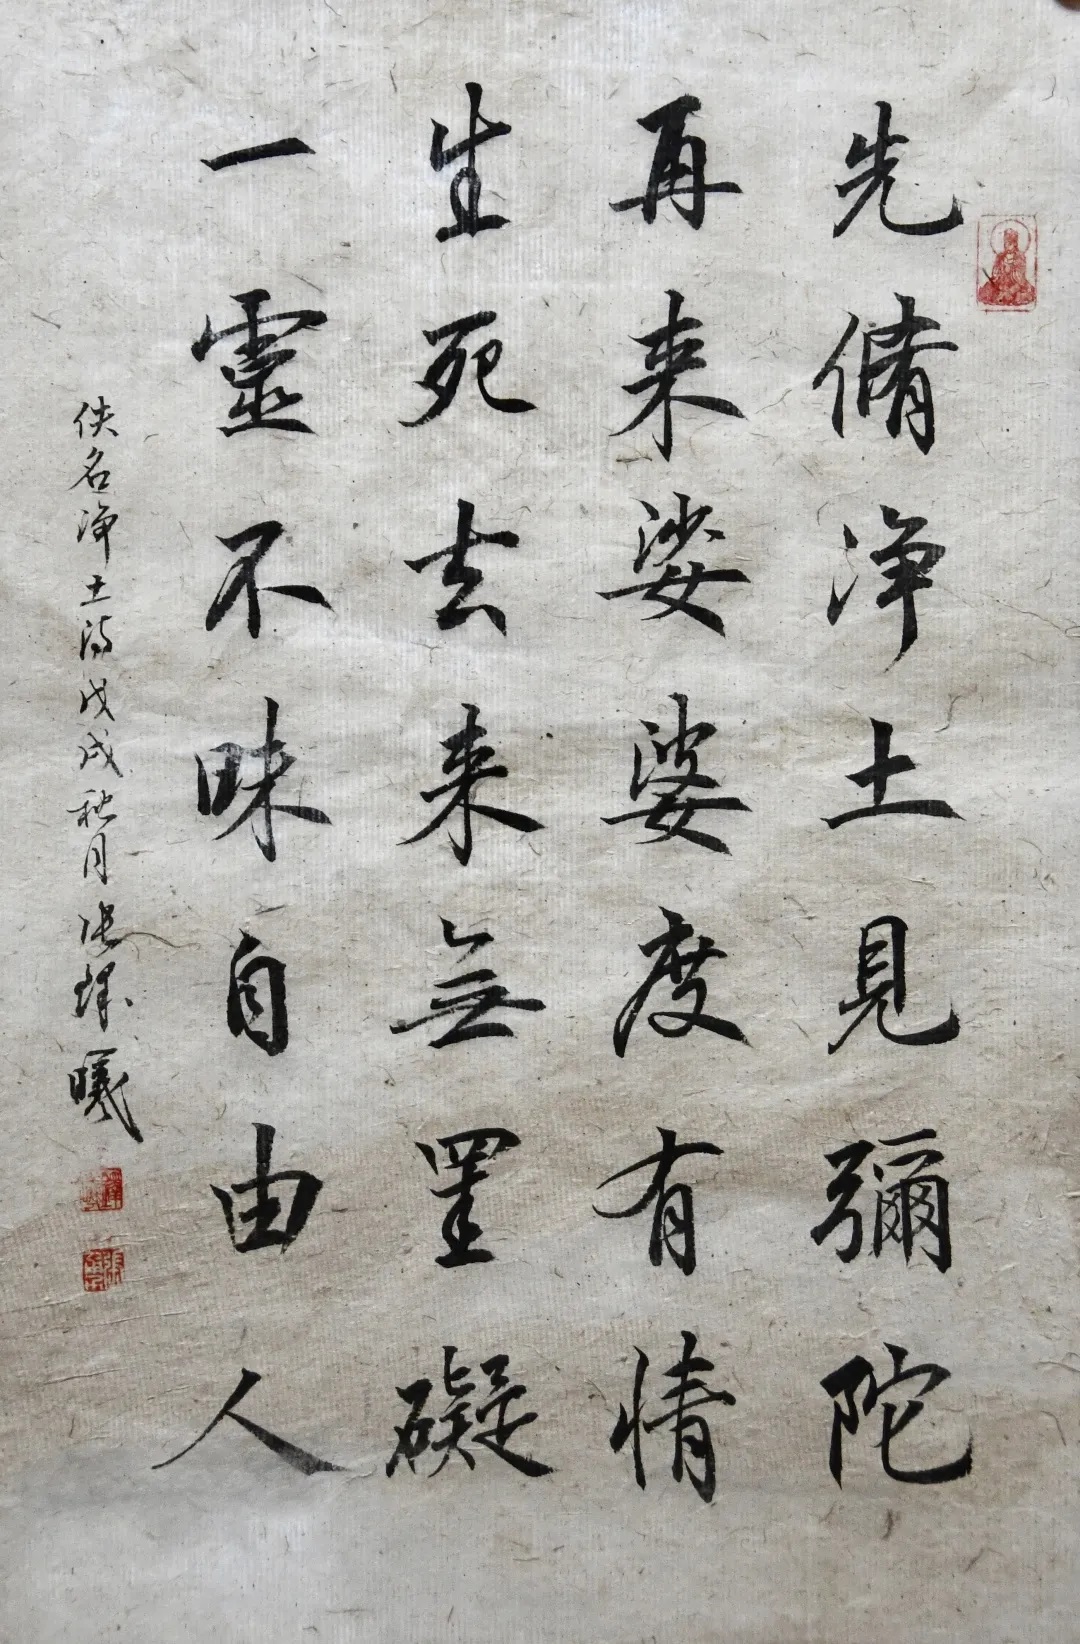 先脩淨土見彌陀
再来娑婆度有情
生死去来無罣礙
一靈不昧自由人
佚名淨土诗戊戌秋月张輝曦